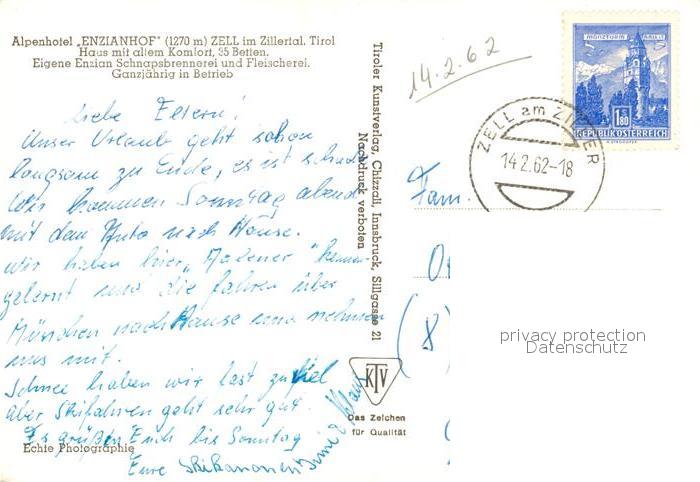 Alpenhotel „ENZIANHOF" (1270 m) ZELL im Zillertal, Tirol
Haus mit allem Komfort, 35 Betten.
Eigene Enzian Schnapsbrennerei und Fleischerei.
Ganzjährig in Betrieb
Liebe Eltern!
Unser Urlaub geht schon
langsam zu Ende, es ist schade
Wir kommen Sonntag abend
mit dem Auto nach Hause.
Wir haben hier „Aachener" kennen-
gelernt und die fahren über
München nach Hause und nehmen
uns mit.
Schnee haben wir fast zu viel
aber Skifahren geht sehr gut.
Es grüßen Euch bis Sonntag
Eure Skikanonen
Klaus
Echte Photographie
Tiroler Kunstverlag, Chizzali, Innsbruck, Sillgasse 21
Nachdruck verboten
KTV
Das Zeichen
für Qualität
14.2.62
MÜNZTURM HALL I.T.
1.80
REPUBLIK ÖSTERREICH
ZELL am ZILLER
14.2.62-18
Fam.
(8)
privacy protection
Datenschutz